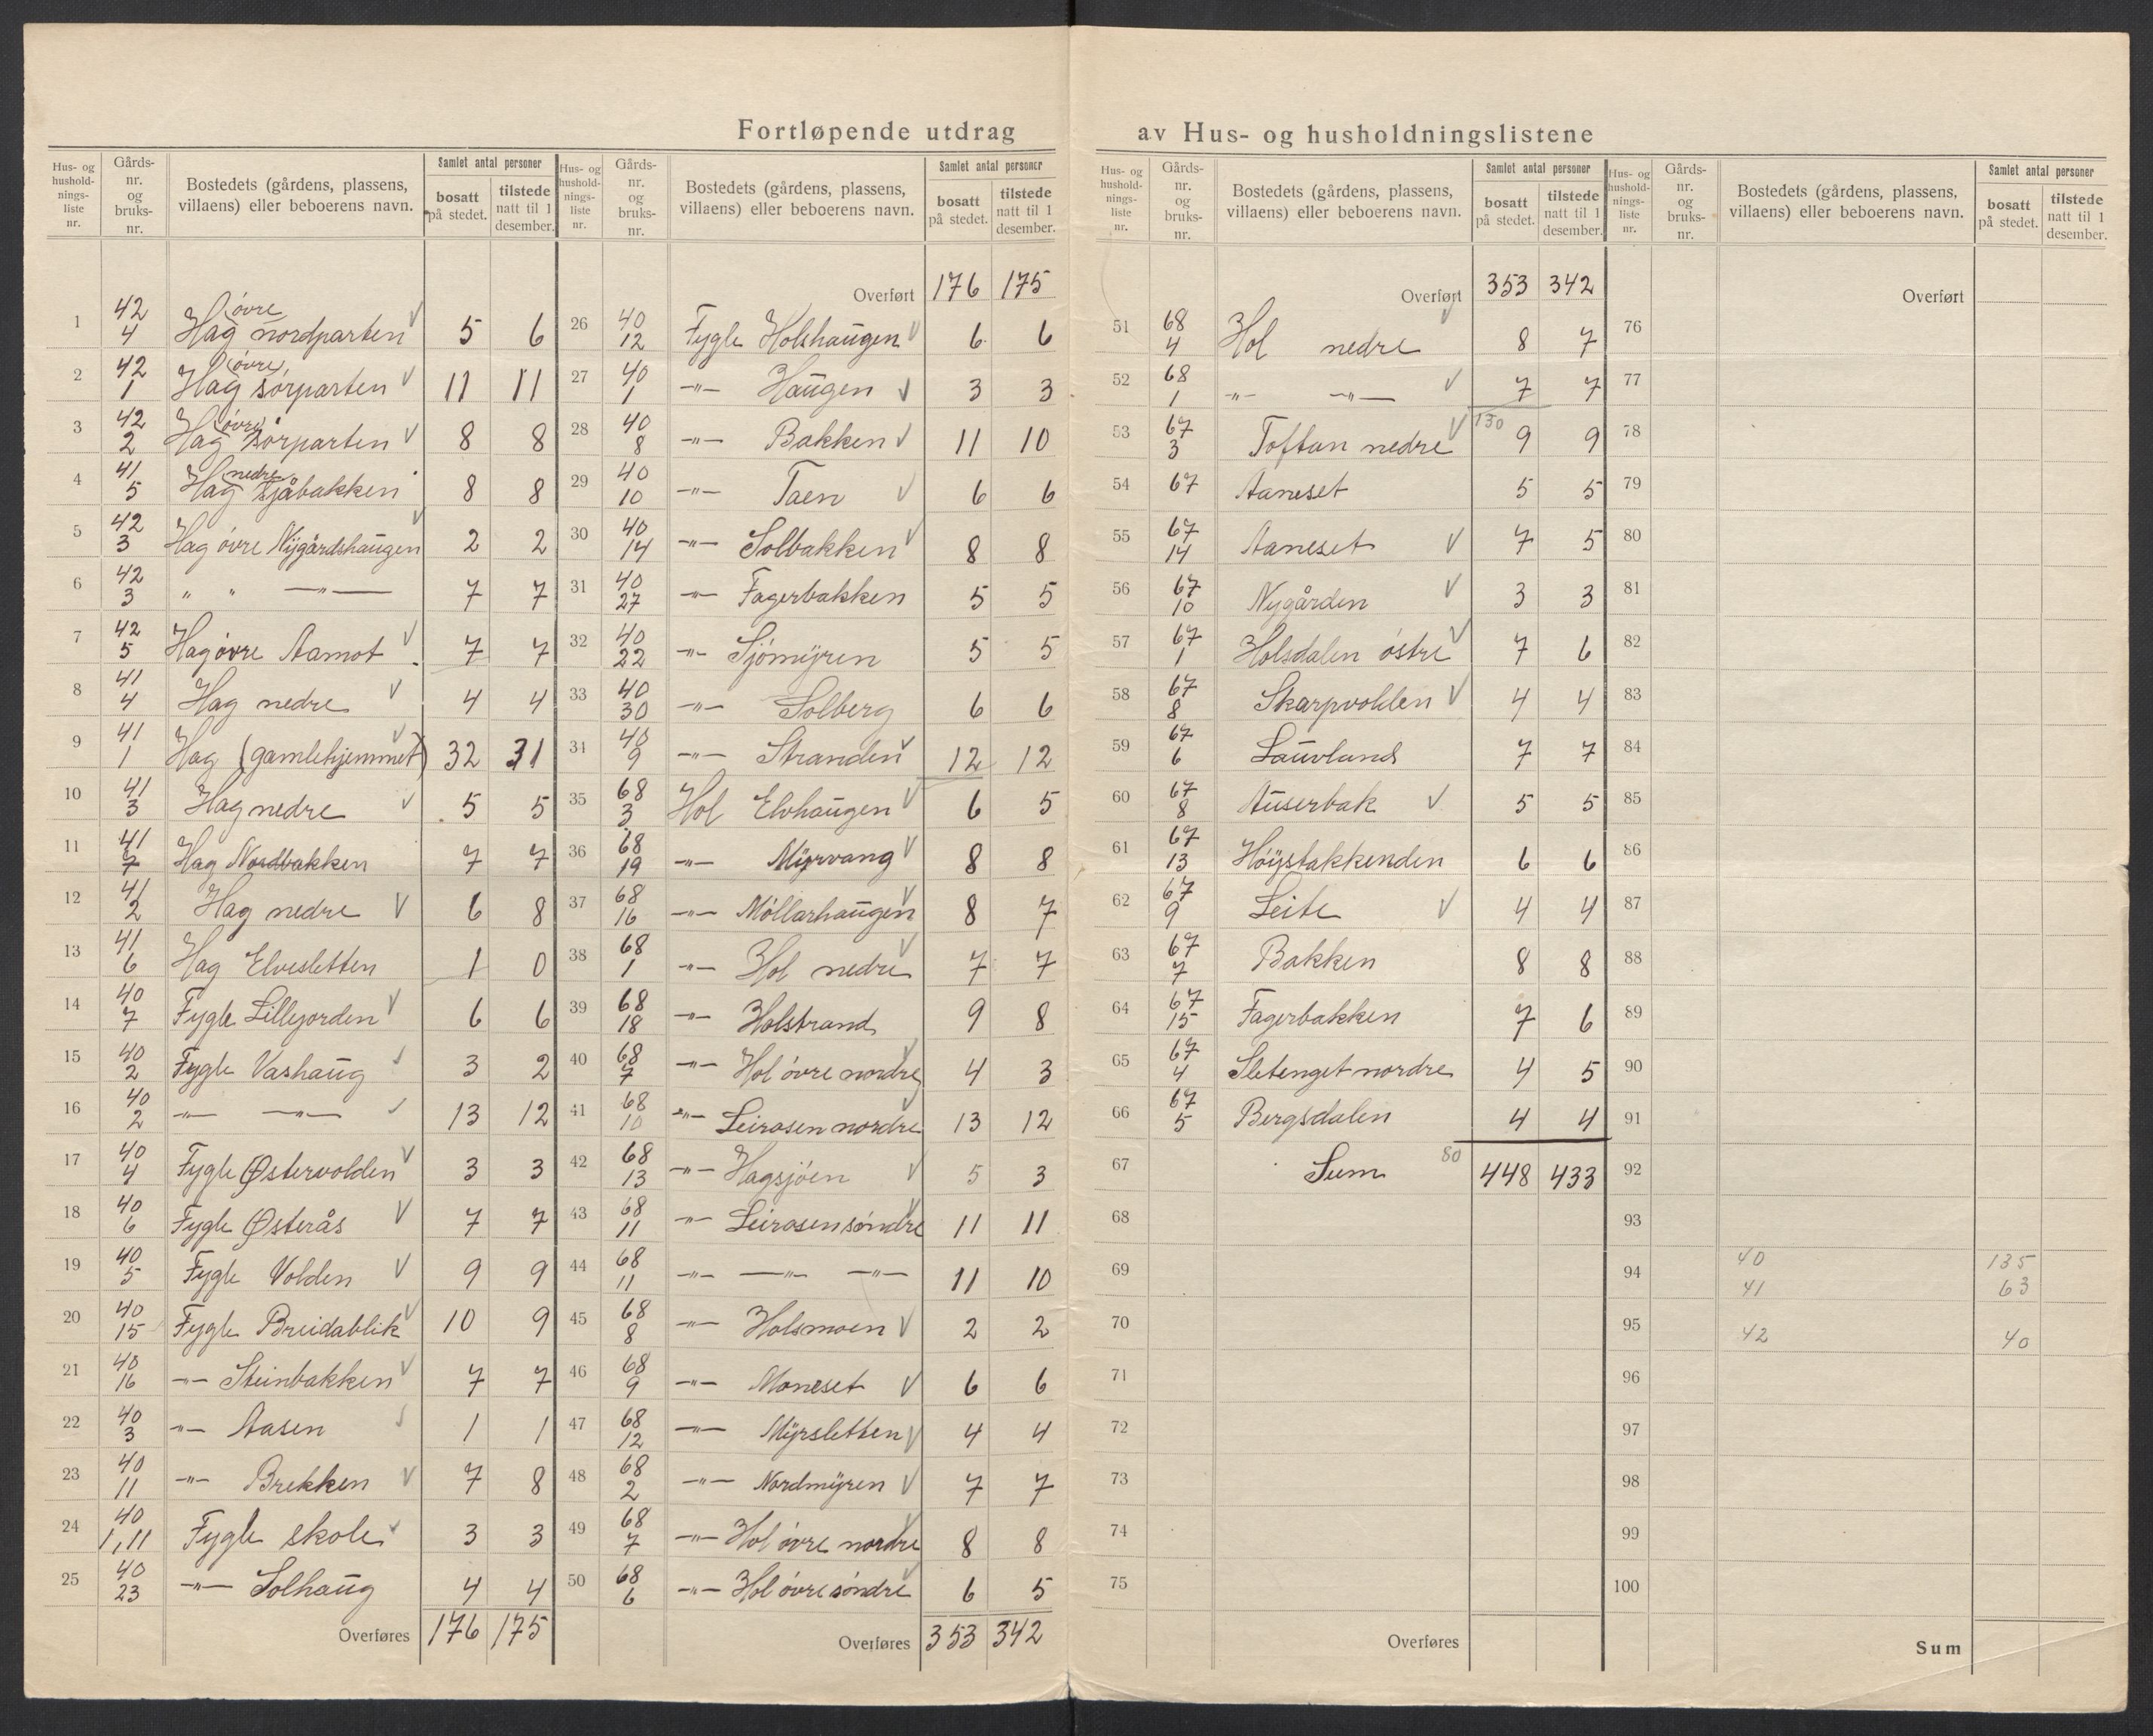 Fortløpende utdrag av Hus- og husholdningslistene
Hus- og husholdningsliste nr. | Gårdsnr. og bruksnr. | Bostedets (gårdens, plassens, villaens) eller beboerens navn. | Samlet antal personer bosatt på stedet. | tilstede natt til 1 desember.
1 42/4 Hag (øvre nordparten 5 6
2 42/1 Hag (øvre) sørparten 11 11
3 42/2 Hag (øvre) sørparten 8 8
4 41/5 Hag (nedre Sjåbakken 8 8
5 42/3 Hag øvre Nygårdshaugen 2 2
6 42/3 " " —"— 7 7
7 42/5 Hag øvre Aamot 7 7
8 41/4 Hag nedre 4 4
9 41/1 Hag (gamlehjemmet) 32 31
10 41/3 Hag nedre 5 5
11 41/7 Hag Nordbakken 7 7
12 41/2 Hag nedre 6 8
13 41/6 Hag Elvesletten 1 0
14 40/7 Fygle Lillejorden 6 6
15 40/2 Fygle Vashaug 3 2
16 40/2 —"— —"— 13 12
17 40/4 Fygle Østervolden 3 3
18 40/6 Fygle Østerås 7 7
19 40/5 Fygle Volden 9 9
20 40/15 Fygle Breidablik 10 9
21 40/16 —"— Steinbakken 7 7
22 40/3 —"— Aasen 1 1
23 40/11 —"— Brekken 7 8
24 40/1,11 Fygle skole 3 3
25 40/23 —"— Solhaug 4 4
Overføres 176 175
Hus- og husholdningsliste nr. | Gårdsnr. og bruksnr. | Bostedets (gårdens, plassens, villaens) eller beboerens navn. | Samlet antal personer bosatt på stedet. | tilstede natt til 1 desember.
Overført 176 175
26 40/12 Fygle Holshaugen 6 6
27 40/1 —"— Haugen 3 3
28 40/8 —"— Bakken 11 10
29 40/10 —"— Taen 6 6
30 40/14 —"— Solbakken 8 8
31 40/27 —"— Fagerbakken 5 5
32 40/22 —"— Sjømyren 5 5
33 40/30 —"— Solberg 6 6
34 40/9 —"— Stranden 12 12
35 68/3 Hol Elvhaugen 6 5
36 68/19 —"— Myrvang 8 8
37 68/16 —"— Møllarhaugen 8 7
38 68/1 —"— Hol nedre 7 7
39 68/18 —"— Holstrand 9 8
40 68/7 —"— Hol øvre nordre 4 3
41 68/10 —"— Leirosen nordre 13 12
42 68/13 —"— Hagsjøen 5 3
43 68/11 —"— Leirosen søndre 11 11
44 68/11 —"— —"— —"— 11 10
45 68/8 —"— Holsmoen 2 2
46 68/9 —"— Moneset 6 6
47 68/12 —"— Myrsletten 4 4
48 68/2 —"— Nordmyren 7 7
49 68/7 —"— Hol øvre nordre 8 8
50 68/6 —"— Hol øvre søndre 6 5
Overføres 353 342
Hus- og husholdningsliste nr. | Gårdsnr. og bruksnr. | Bostedets (gårdens, plassens, villaens) eller beboerens navn. | Samlet antal personer bosatt på stedet. | tilstede natt til 1 desember.
Overført 353 342
51 68/4 Hol nedre 8 7
52 68/1 —"— —"— 7 7
130
53 67/3 Toftan nedre 9 9
54 67 Aaneset 5 5
55 67/14 Aaneset 7 5
56 67/10 Nygården 3 3
57 67/1 Holsdalen østre 7 6
58 67/8 Skarpvolden 4 4
59 67/6 Lauvland 7 7
60 67/8 Auserbak 5 5
61 67/13 Høystakkenden 6 6
62 67/9 Leite 4 4
63 67/7 Bakken 8 8
64 67/15 Fagerbakken 7 6
65 67/4 Sletenget nordre 4 5
66 67/5 Bergsdalen 4 4
67 Sum 80 448 433
68
69
70
71
72
73
74
75
Overføres
Hus- og husholdningsliste nr. | Gårdsnr. og bruksnr. | Bostedets (gårdens, plassens, villaens) eller beboerens navn. | Samlet antal personer bosatt på stedet. | tilstede natt til 1 desember.
Overført
76
77
78
79
80
81
82
83
84
85
86
87
88
89
90
91
92
93
40 135
94
41 63
95
42 40
96
97
98
99
100
Sum